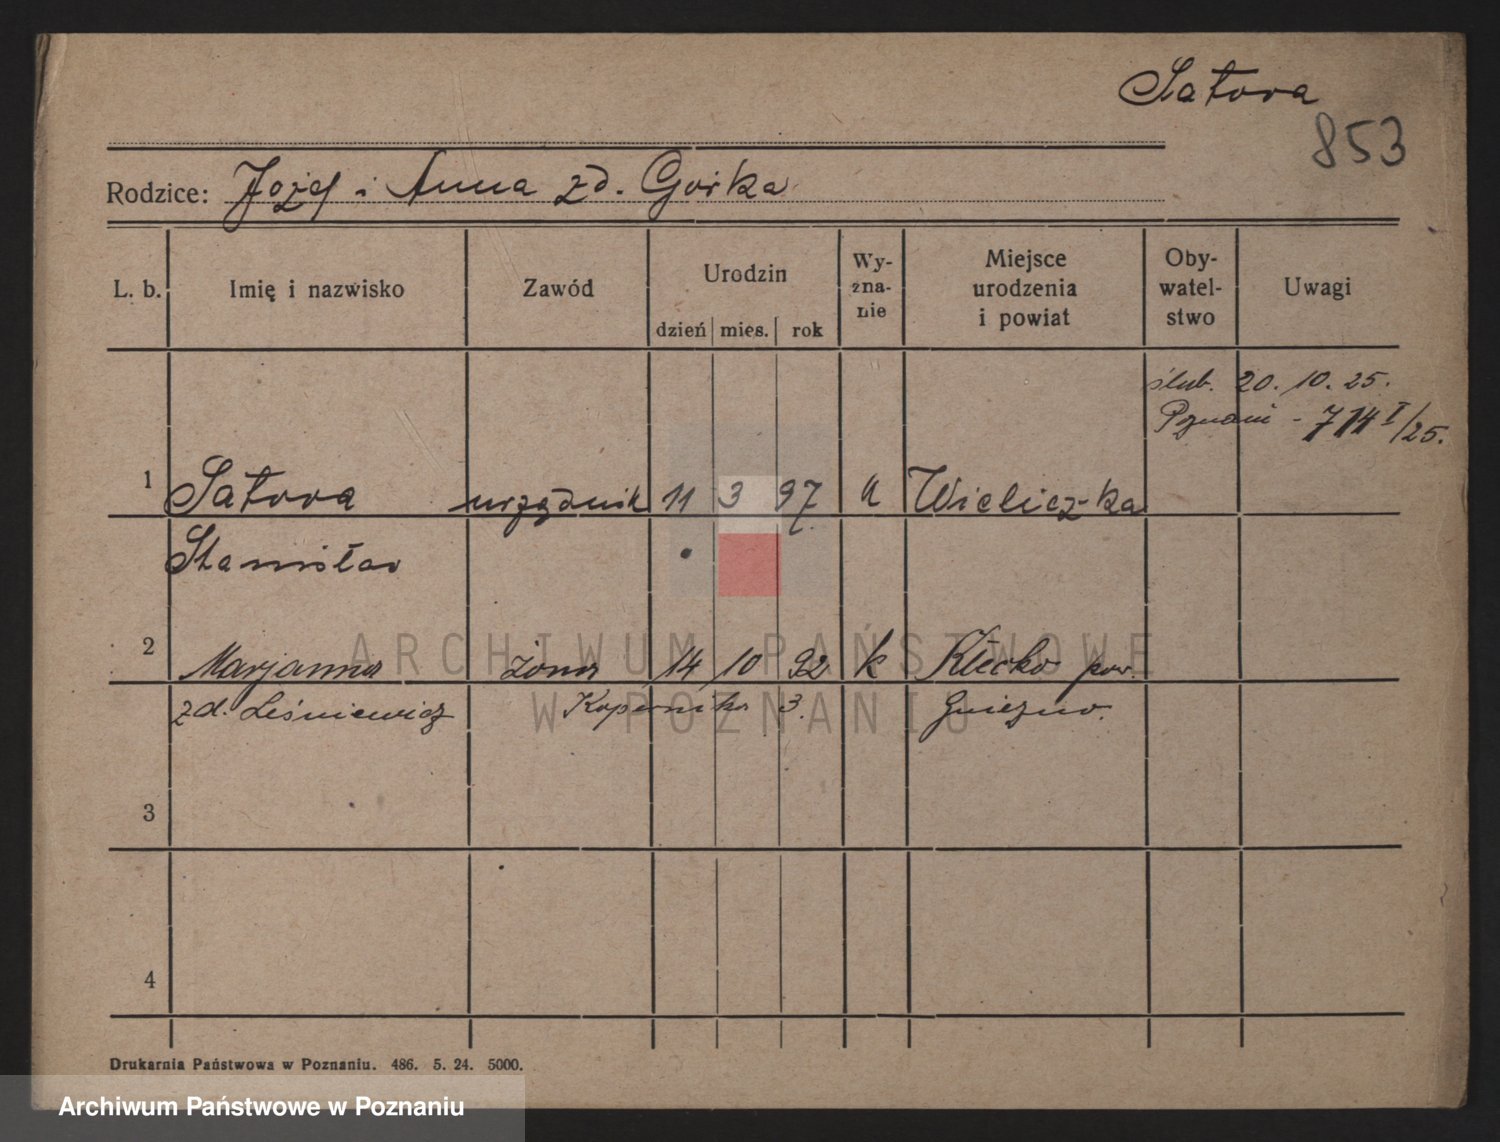 Satora
853
Rodzice: Józef i Anna zd. Gorka
L. b.
Imię i nazwisko
Zawód
Urodzin
dzień mies. rok
Wy-
zna-
nie
Miejsce
urodzenia
i powiat
Oby-
watel-
stwo
Uwagi
ślub. 20. 10. 25.
Poznań - 714 I/25.
1 Satora urzędnik 11 3 97 k Wieliczka
Stanisław
2 Marjanna żona 14 10 92 k Kłecko pow.
zd. Leśniewicz Kopernika 3. Gniezno.
3
4
ARCHIWUM PAŃSTWOWE
W POZNANIU
Drukarnia Państwowa w Poznaniu. 486. 5. 24. 5000.
Archiwum Państwowe w Poznaniu